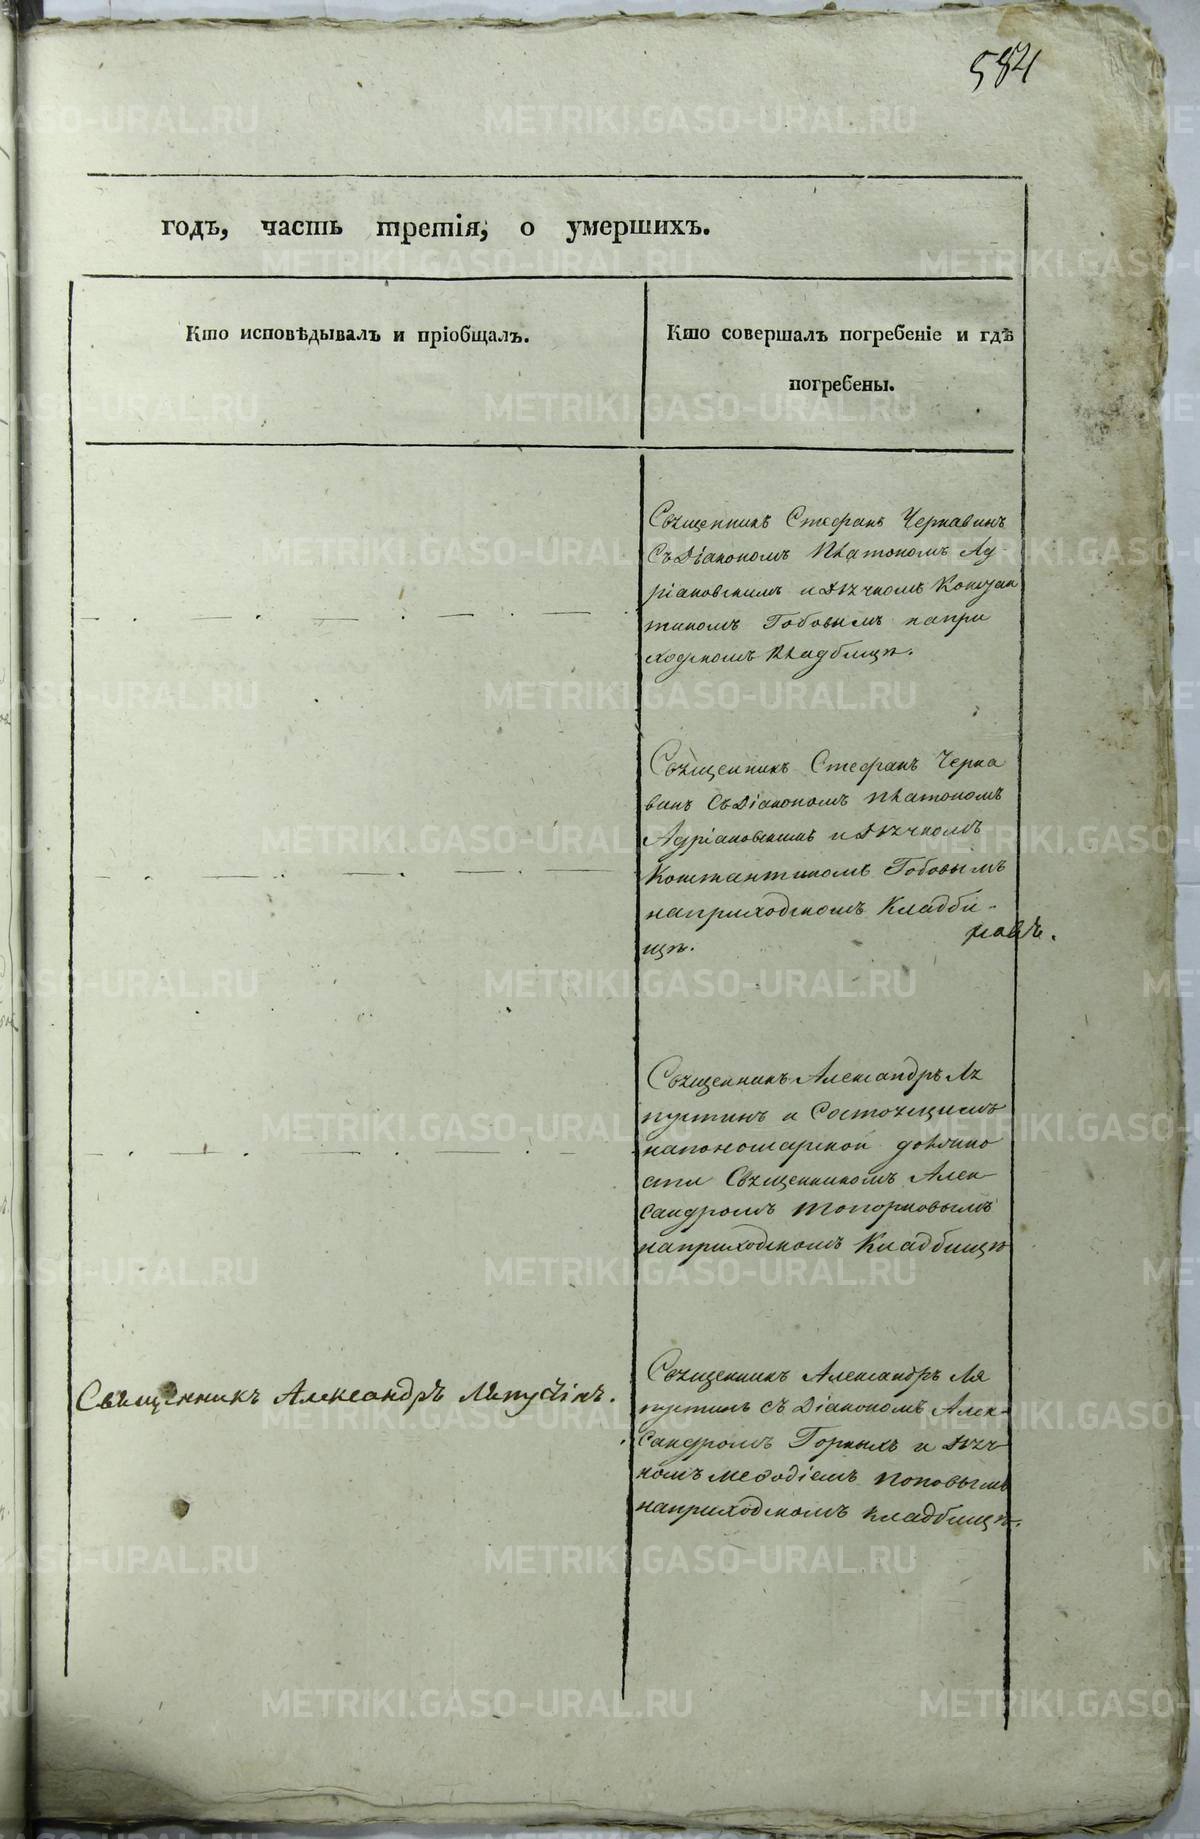 584
годъ, часть третія, о умершихъ.
Кто исповѣдывалъ и пріобщалъ.
Кто совершалъ погребеніе и гдѣ
погребены.
Священникъ Стефанъ Чернавинъ
съ Діакономъ Платономъ Ад-
ріановскимъ и Дьячкомъ Констан
тиномъ Гобовымъ на при
ходскомъ Кладбищѣ.
Священникъ Стефанъ Черна
винъ съ Діакономъ Платономъ
Адріановскимъ и Дьячкомъ
Константиномъ Гобовымъ
на приходскомъ Кладби-
щѣ.
Священникъ Александръ Ля
пустинъ и Состоящимъ
на пономарской должно
сти Священникомъ Алек-
сандромъ Топорковымъ
на приходскомъ Кладбищѣ
Священникъ Александръ Ляпустинъ.
Священникъ Александръ Ля
пустинъ съ Діакономъ Алек-
сандромъ Горныхъ и Дьяч-
комъ Меѳодіемъ Поповымъ
на приходскомъ кладбищѣ.
METRIKI.GASO-URAL.RU